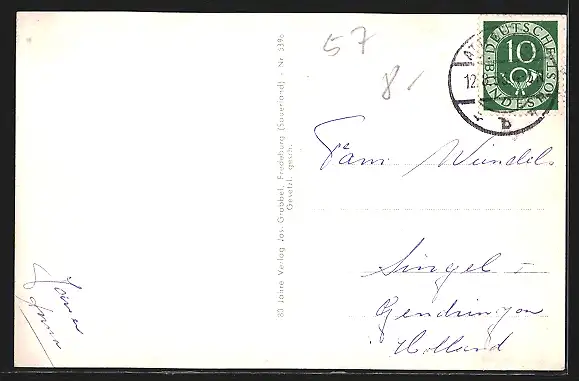 57
8
DEUTSCHE BUNDESPOST
10
12.
b
80 Jahre Verlag Jos. Grobbel, Fredeburg (Sauerland) - Nr 5396
Gesetzl. gesch.
Fam Wendels
Singel
Gendringen
Holland